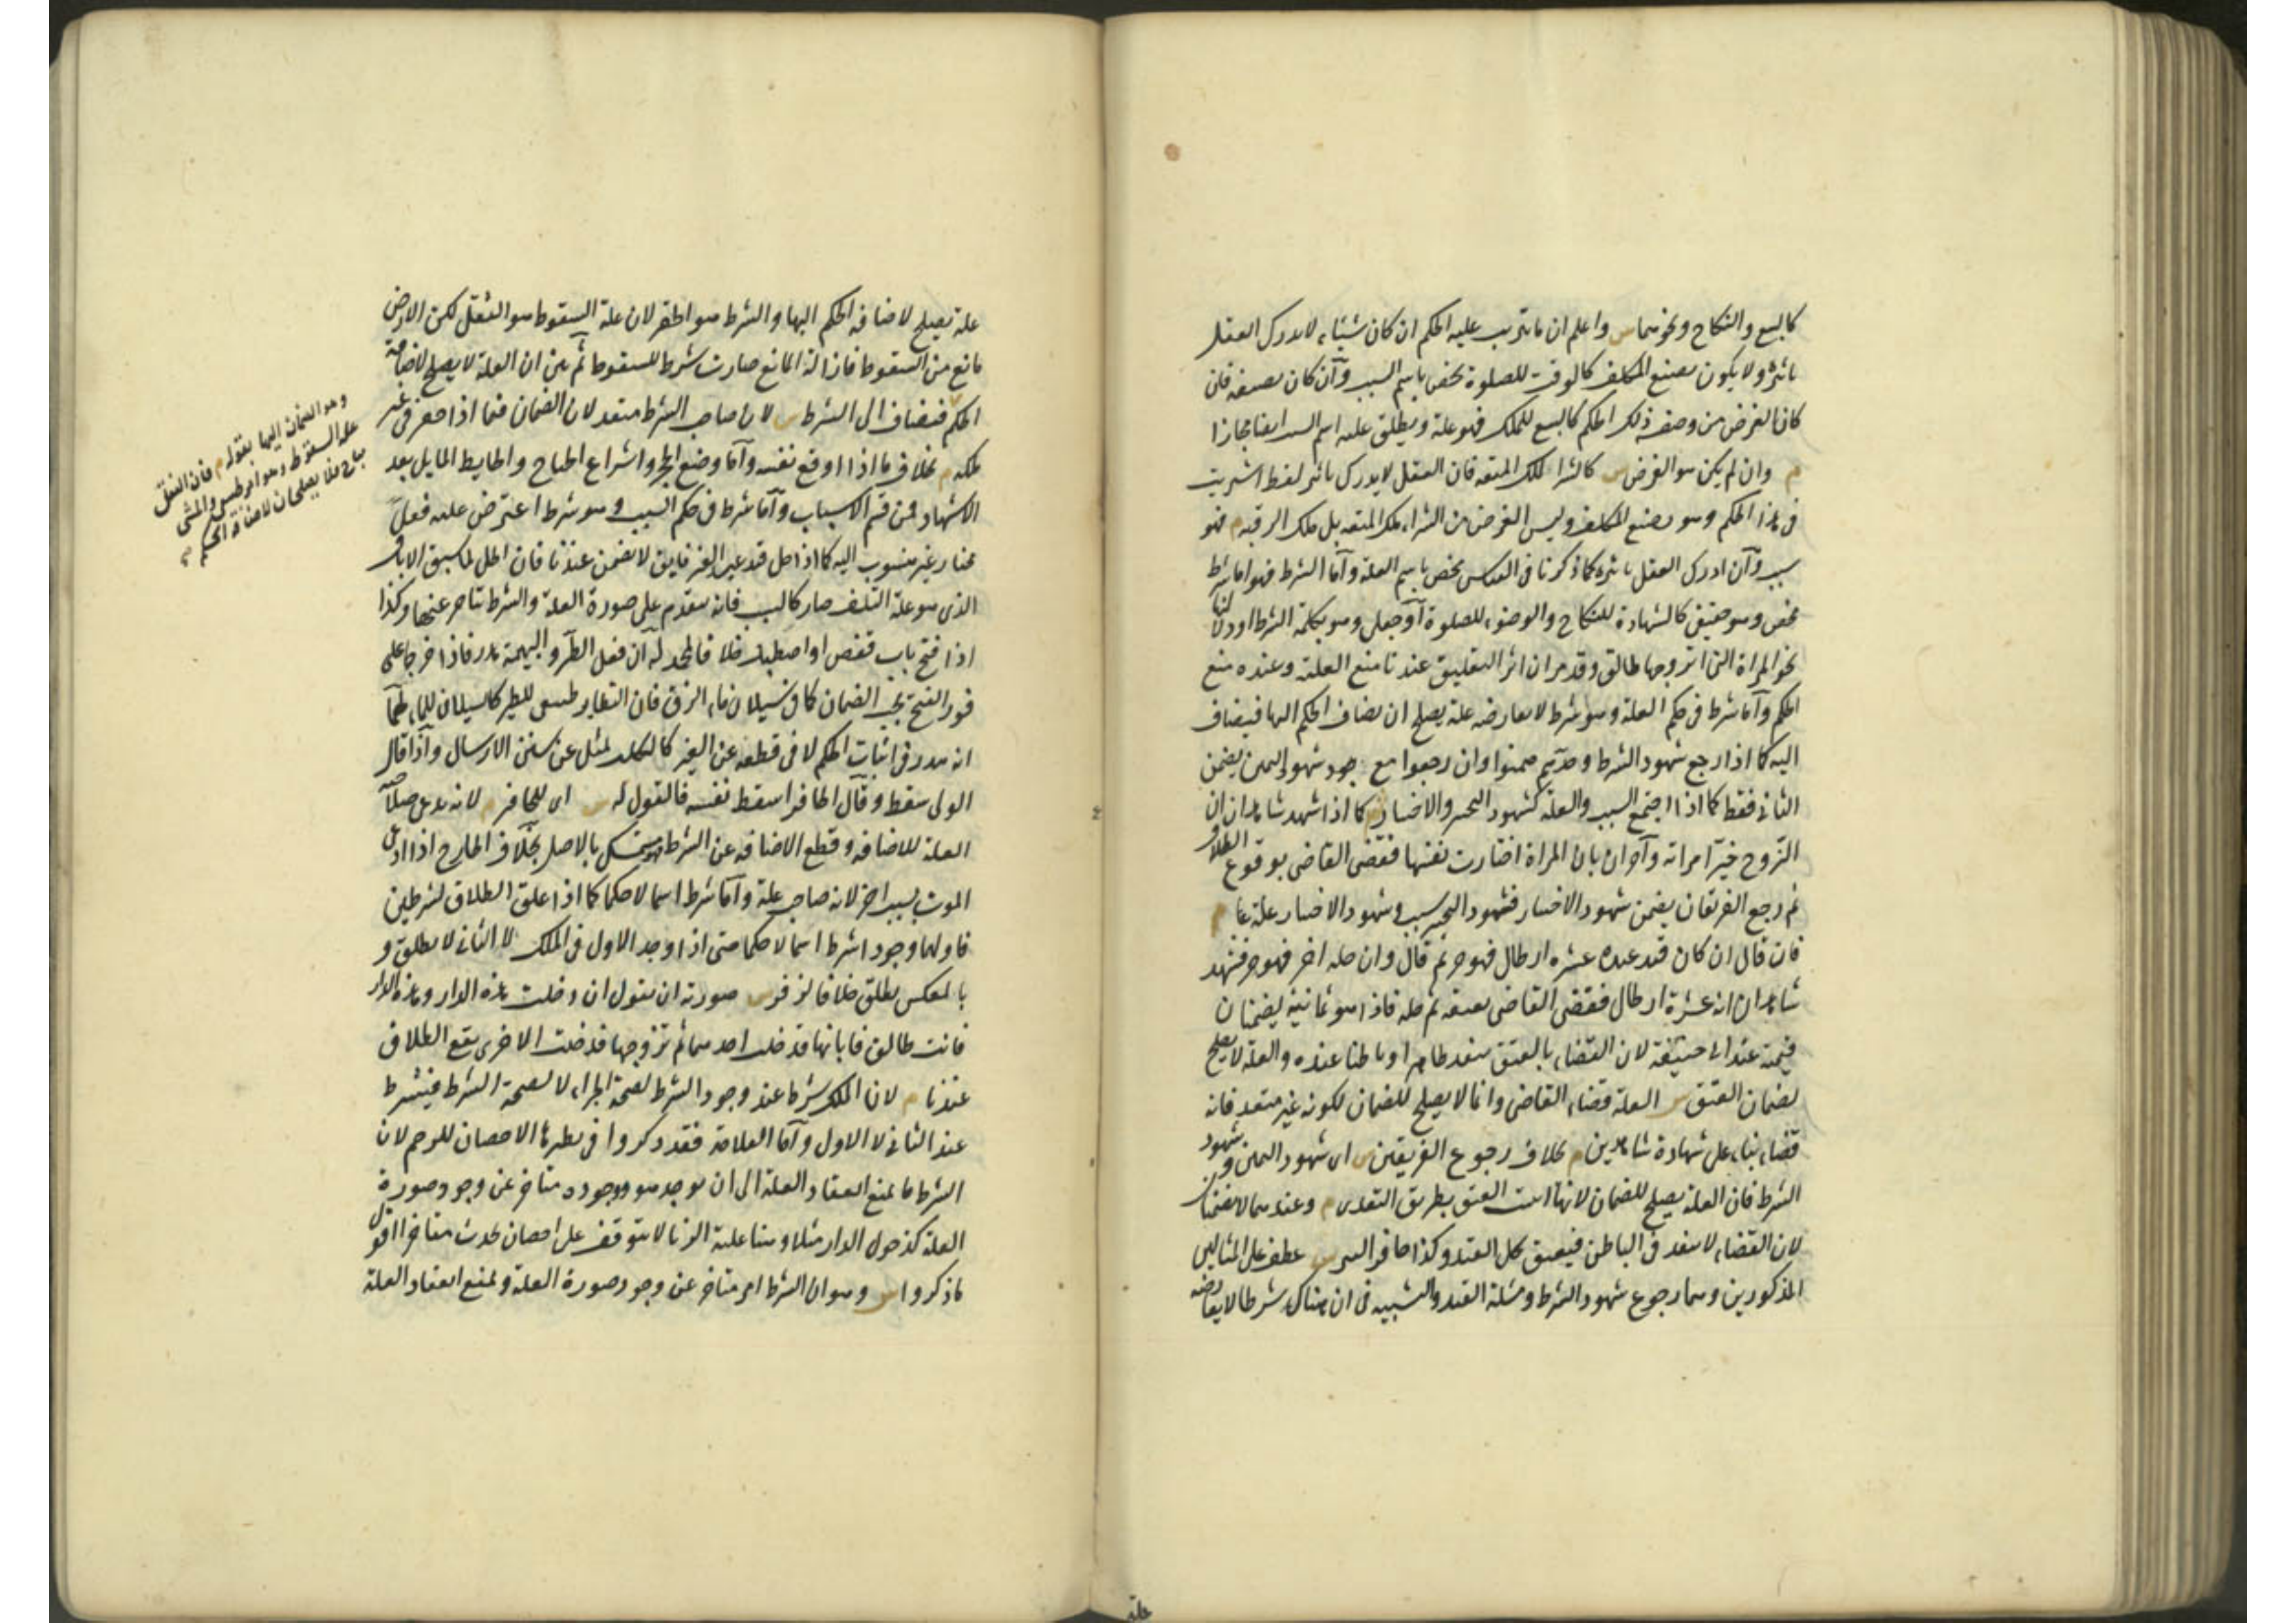 كالبيع والنكاح ونحوهما ش واعلم ان ما يترتب عليه الحكم ان كان شيئا لا يدرك العقل
تاثيره ولا يكون بصنع المكلف كالوقت للصلوة يخص باسم السبب وان كان بصنعه فان
كان الغرض من وضعه ذلك الحكم كالبيع للملك فهو علة ويطلق عليه اسم السبب ايضا مجازا
م وان لم يكن هو الغرض ش كالشراء لملك المتعة فان العقل لا يدرك تاثير لفظ اشتريت
فى هذا الحكم وهو بصنع المكلف وليس الغرض من الشراء ملك المتعة بل ملك الرقبة م فهو
سبب وان ادرك العقل تاثيره كما ذكرنا فى القياس يخص باسم العلة واما الشرط فهو اما شرط
محض وهو حقيقى كالشهادة للنكاح والوضوء للصلوة او جعلى وهو بكلمة الشرط او دلالتها
نحو المراة التى اتزوجها طالق وقد مر ان اثر التعليق عندنا منع العلة وعنده منع
الحكم واما شرط فى حكم العلة وهو شرط لا يعارضه علة يصلح ان يضاف الحكم اليها فيضاف
اليه كما اذا رجع شهود الشرط وحدهم ضمنوا وان رجعوا مع شهود اليمين يضمن
الثانى فقط كما اذا اجتمع السبب والعلة كشهود التخيير والاختيار ش كما اذا شهد شاهدان ان
الزوج خير امراته وآخران بان المراة اختارت نفسها فقضى القاضى بوقوع الطلاق
ثم رجع الفريقان يضمن شهود الاختيار فشهود التخيير سبب وشهود الاختيار علة م
فان قال ان كان قيد عبده عشرة ارطال فهو حر ثم قال وان حله اخر فهو حر فشهد
شاهدان انه عشرة ارطال فقضى القاضى بعتقه ثم حله فاذا هو ثمانية يضمنان
قيمته عند ابى حنيفة لان القضاء بالعتق ينفذ ظاهرا وباطنا عنده والعلة لا يصلح
لضمان العتق ش العلة قضاء القاضى وانما لا يصلح للضمان لكونه غير متعد فانه
قضاء بناء على شهادة شاهدين م بخلاف رجوع الفريقين ش اى شهود اليمين وشهود
الشرط فان العلة يصلح للضمان لانها اثبتت العتق بطريق التعدى م وعندهما لا يضمنان
لان القضاء لا ينفذ فى الباطن فيعتق بحل القيد وكذا حافر البئر ش عطف على المثالين
المذكورين وهما رجوع شهود الشرط ومسئلة القيد والتشبيه فى ان هناك شرطا لا يعارضه
علة
علة يصلح لاضافة الحكم اليها والشرط هو الحفر لان علة السقوط هو الثقل لكن الارض
مانع من السقوط فازالة المانع صارت شرطا للسقوط ثم بين ان العلة لا يصلح لاضافة
الحكم فيضاف الى الشرط ش لان صاحب الشرط متعد لان الضمان فيما اذا حفر فى غير
ملكه م بخلاف ما اذا اوقع نفسه واما وضع الحجر واشراع الجناح والحايط المايل بعد
الاشهاد فمن قسم الاسباب واما شرط فى حكم السبب وهو شرط اعترض عليه فعل
مختار غير منسوب اليه كما اذا حل قيد عبد الغير فابق لا يضمن عندنا فان الحل لما سبق الاباق
الذى هو علة التلف صار كالسبب فانه يتقدم على صورة العلة والشرط يتاخر عنها وكذا
اذا فتح باب قفص او اصطبل خلافا لمحمد له ان فعل الطير والبهيمة هدر فاذا خرجا على
فور الفتح يجب الضمان كما فى سيلان ماء الزق فان الطيران طبيعى للطير كالسيلان للماء لهما
انه هدر فى اثبات الحكم لا فى قطعه عن الغير كالكلب يميل عن سنن الارسال واذا قال
الولى سقط وقال الحافر اسقط نفسه فالقول له ش اى للحافر م لانه يدعى صلاحية
العلة للاضافة وقطع الاضافة عن الشرط فيتمسك بالاصل بخلاف الجارح اذا ادعى
الموت بسبب اخر لانه صاحب علة واما شرط اسما لا حكما كما اذا علق الطلاق بشرطين
فاولهما وجودا شرط اسما لا حكما حتى اذا وجد الاول فى الملك لا الثانى لا يطلق و
بالعكس يطلق خلافا لزفر ش صورته ان يقول ان دخلت هذه الدار وهذه الدار
فانت طالق فابانها فدخلت احدهما ثم تزوجها فدخلت الاخرى يقع الطلاق
عندنا م لان الملك شرط عند وجود الشرط لصحة الجزاء لا لصحة الشرط فيشترط
عند الثانى لا الاول واما العلامة فقد ذكروا فى نظيرها الاحصان للرجم لان
الشرط ما يمنع انعقاد العلة الى ان يوجد هو ووجوده متاخر عن وجود صورة
العلة كدخول الدار مثلا وهنا علية الزنا لا يتوقف على احصان يحدث متاخرا اقول
ما ذكروا ش وهو ان الشرط امر متاخر عن وجود صورة العلة ويمنع انعقاد العلة
وهو الضمان اليها بقوله م فان الثقل
علة السقوط وهو امر طبيعى والمشى
مباح فلا يصلحان لاضافة الحكم